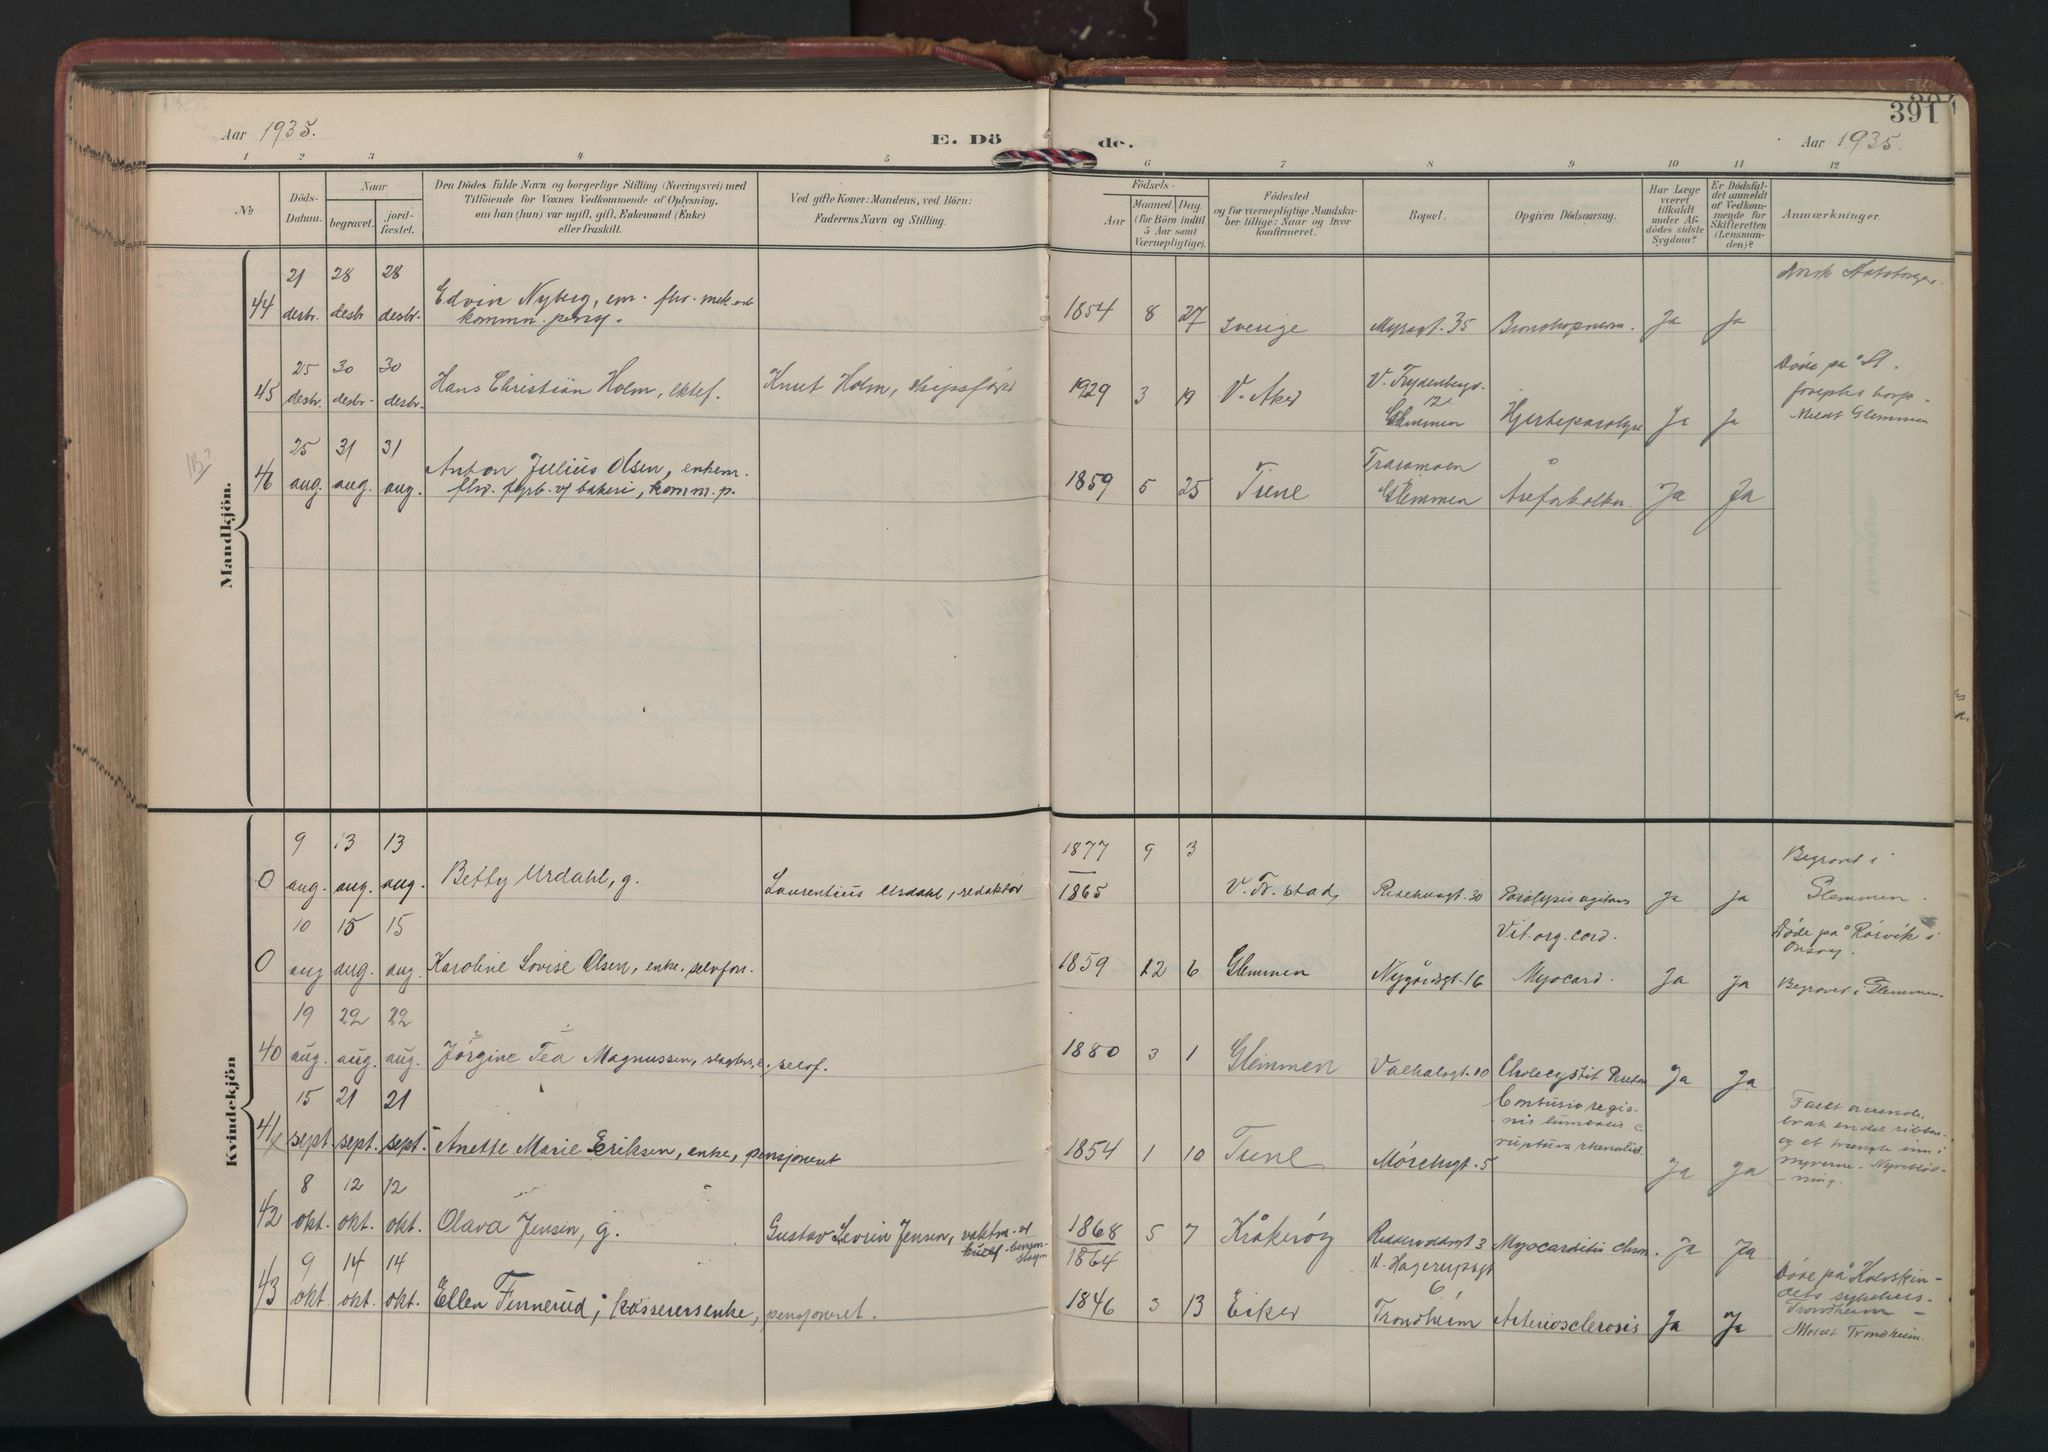 391
Aar 1935.
E. Dö
de.
Aar 1935.
1 2 3 4 5 6 7 8 9 10 11 12
No
Döds-
Datum.
Naar
begravet.
jord-
fæstet.
Den Dödes fulde Navn og borgerlige Stilling (Næringsvei) med
Tilföiende for Voxnes Vedkommende af Oplysning,
om han (hun) var ugift, gift, Enkemand (Enke)
eller fraskilt.
Ved gifte Koner: Mandens, ved Börn:
Faderens Navn og Stilling.
Födsels-
Aar
Maaned. Dag.
(for Börn indtil
5 Aar samt
Værnepligtige).
Födested
og for værnepligtige Mandska-
ber tillige: Naar og hvor
konfirmeret.
Bopæl.
Opgiven Dödsaarsag.
Har Læge
været
tilkaldt
under Af-
dödes sidste
Sygdom?
Er Dödsfal-
det anmeldt
af Vedkom-
mende for
Skifteretten
(Lensman-
den)?
Anmærkninger.
Mandkjön.
21 28 28
Norsk Statsborger.
44 desbr. desbr. desbr. Edvin Nyberg, em. fhv. mek. arb.
kommn. pensj.
1854 8 27 Sverige Myragt. 35 Bronchopneum. Ja Ja
25 30 30
45 desbr. desbr. desbr. Hans Christian Holm, ektef. Knut Holm, skipsfører 1929 3 19 V. Aker V. Frydenbergv.
12
Glemmen Hjerteparalyse Ja Ja
Døde på St.
Josephs hosp.
Meldt Glemmen
25 31 31
46 aug. aug. aug. Anton Julius Olsen, enkem.
fhv. fyrb. v/ bakeri, komm. p.
1859 5 25 Tune Traramoen
Glemmen Åreforkalkn. Ja Ja
Kvindekjön
9 13 13
0 aug. aug. aug. Betty Urdahl, g. Laurentius Urdahl, redaktør 1877 9 3
1865 V. Fr.stad, 30 Paralysis agitans Ja Ja Begravet i
Glemmen.
10 15 15
0 aug aug. aug. Karoline Lovise Olsen, enke, selvfors. 1859 12 6 Glemmen Nygårdsgt. 16 Vit. org. cord.
Myocard. Ja Ja Døde på Rørvik i
Onsøy.
Begravet i Glemmen.
19 22 22
40 aug. aug. aug. Jørgine Tea Magnussen, selvf. 1880 3 1 Glemmen Valhalsgt. 10 Cholecystit Ja Ja
15 21 21
41 sept. sept. sept. Anette Marie Eriksen, enke, pensjoneret 1854 1 10 Tune Mørchsgt. 5 Contusio regio-
nis lumbalis c
ruptura rhenalis Ja Ja
Faldt
brak endel ribben
og et trængte inn i
nyrerne. Nyreblød-
ning.
8 12 12
42 okt. okt. okt. Olava Jensen, g. Gustav Sevrin Jensen, vaktm. v/
1868 5 7
1864 Kråkerøy 3 Myocarditis chron. Ja Ja
9 14 14
43 okt. okt. okt. Ellen Finnerud, kasserersenke, pensjoneret. 1846 3 13 Eiker H. Hagerupsgt
6
Trondheim Arteriosclerosis Ja Ja
Døde på
sykehus
Trondheim -
Meldt Trondheim.